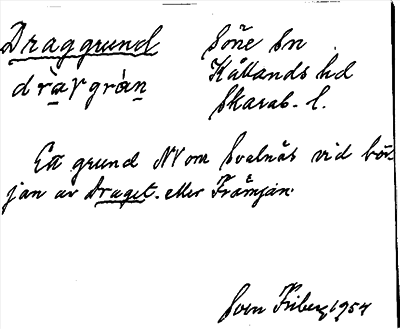 Draggrund
dràvgràn
Söne sn
Kållands hd
Skarab. l.
Ett grund NV om Svalnäs vid bör-
jan av Draget. eller Främjan.
Sven Friberg 1954